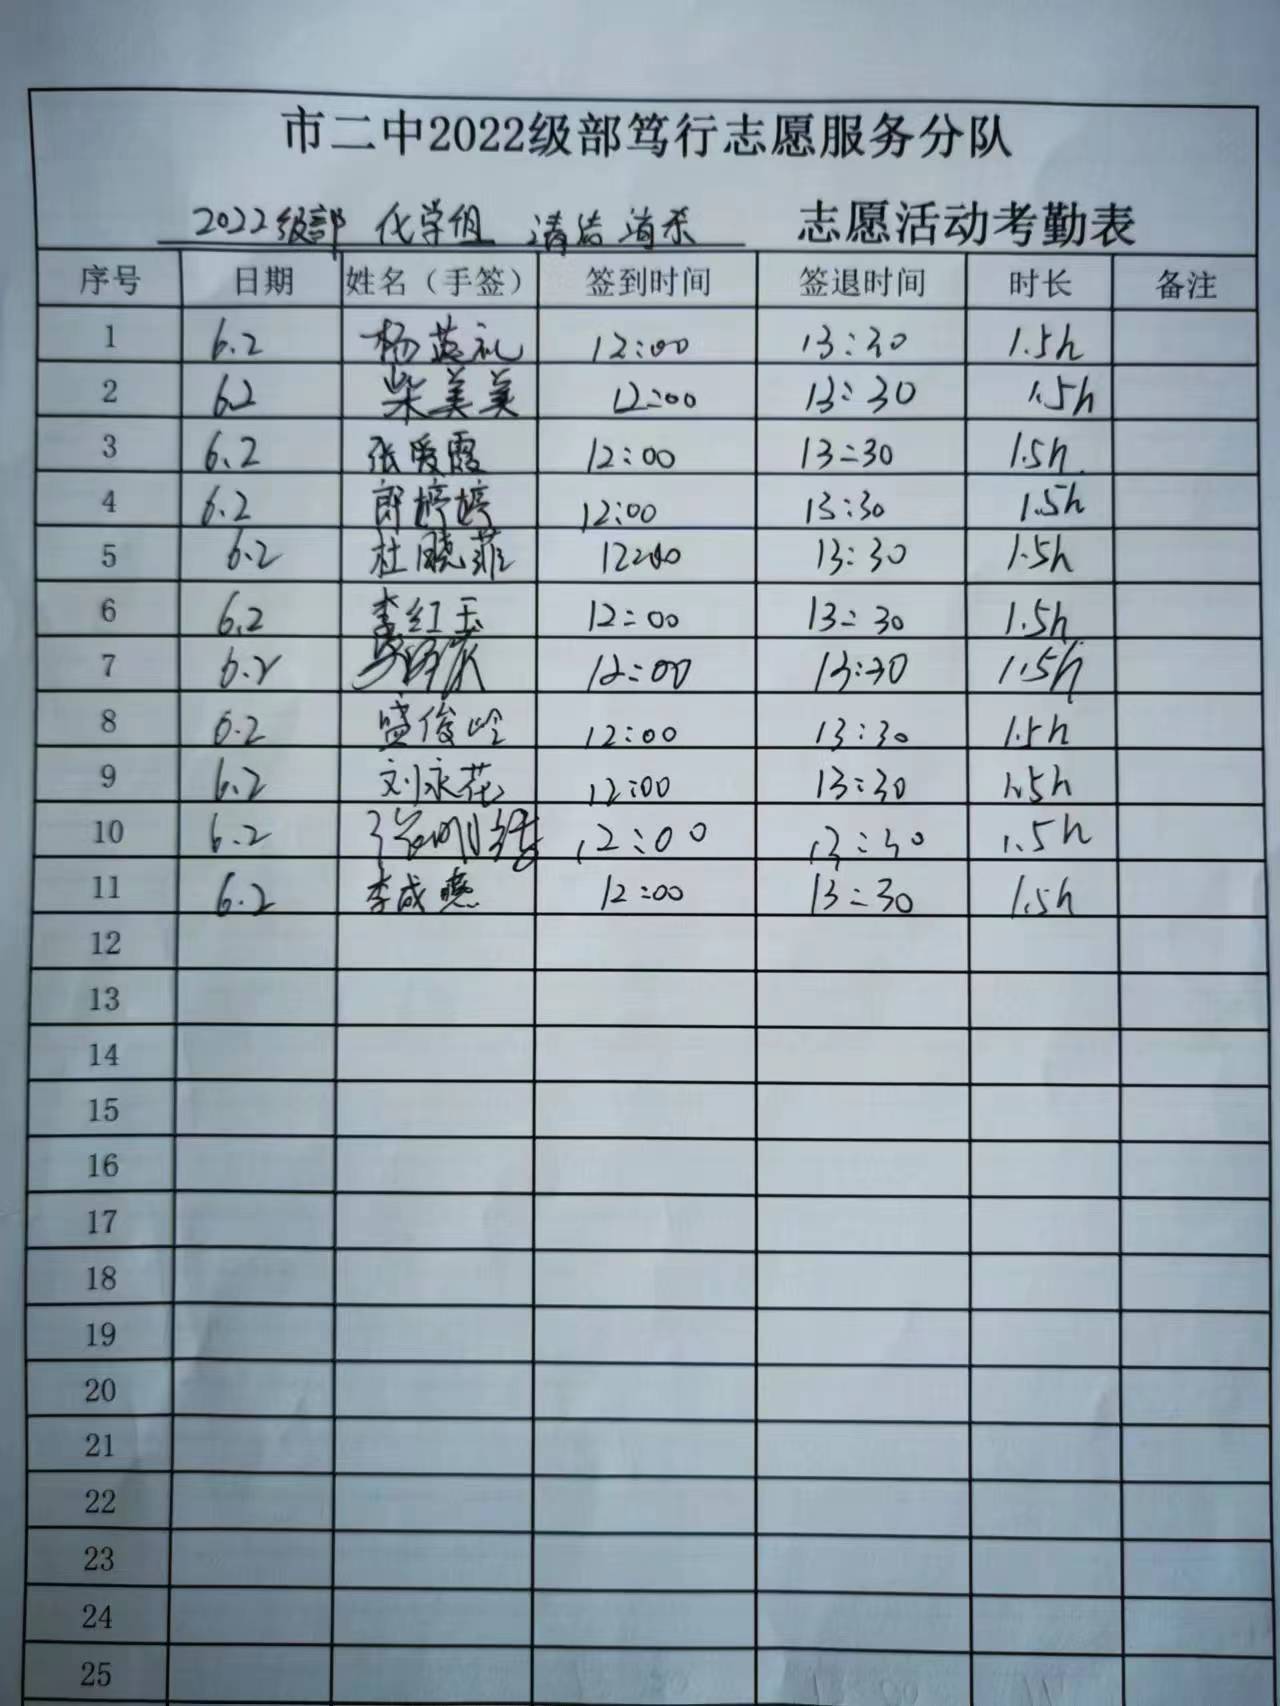 市二中2022级部笃行志愿服务分队
2022级部 化学组 清洁消杀 志愿活动考勤表
序号 日期 姓名（手签） 签到时间 签退时间 时长 备注
1 6.2 杨蕊礼 12:00 13:30 1.5h
2 6.2 柴美美 12:00 13:30 1.5h
3 6.2 张爱霞 12:00 13:30 1.5h
4 6.2 郎婷婷 12:00 13:30 1.5h
5 6.2 杜晓菲 12:00 13:30 1.5h
6 6.2 李红玉 12:00 13:30 1.5h
7 6.2 12:00 13:30 1.5h
8 6.2 盛俊岭 12:00 13:30 1.5h
9 6.2 刘永花 12:00 13:30 1.5h
10 6.2 12:00 13:30 1.5h
11 6.2 李成燕 12:00 13:30 1.5h
12
13
14
15
16
17
18
19
20
21
22
23
24
25